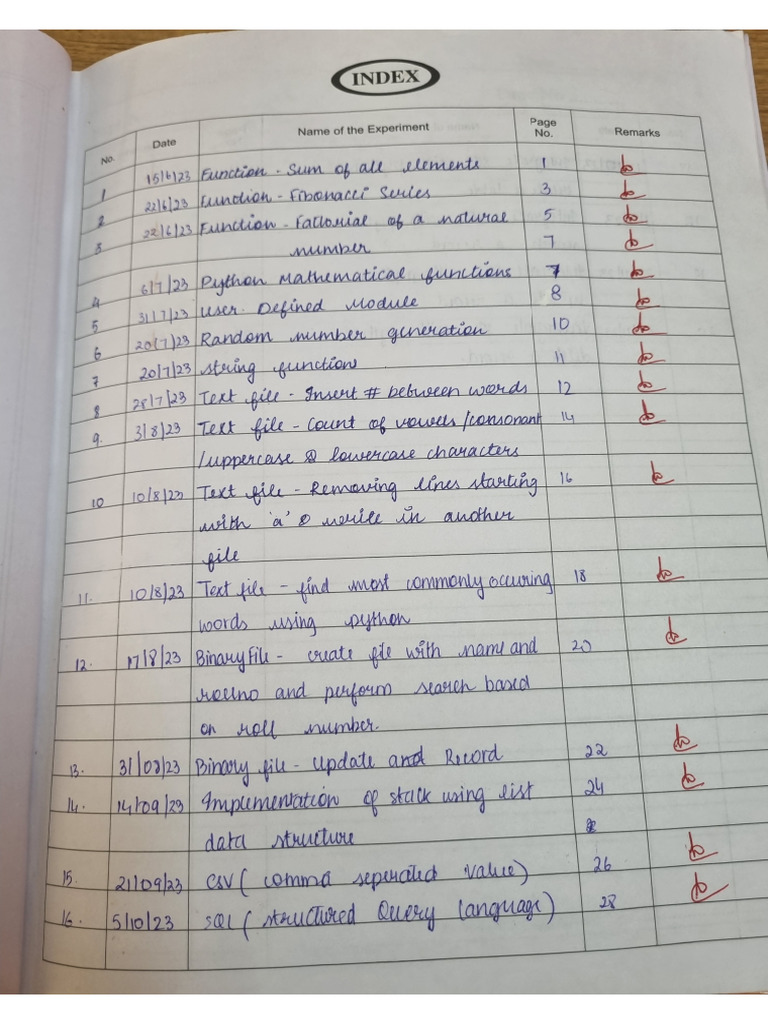 INDEX
No. Date Name of the Experiment Page No. Remarks
1 15/6/23 Function - Sum of all elements 1
2 22/6/23 Function - Fibonacci Series 3
3 22/6/23 Function - Factorial of a natural 5
number 7
4 6/7/23 Python Mathematical functions 7
5 31/7/23 User Defined Module 8
6 20/7/23 Random number generation 10
7 20/7/23 string function 11
8 28/7/23 Text file - Insert # between words 12
9. 3/8/23 Text file - Count of vowels/consonant 14
/uppercase & lowercase characters
10 10/8/23 Text file - Removing lines starting 16
with 'a' & write in another
file
11. 10/8/23 Text file - find most commonly occuring 18
words using python
12. 17/8/23 Binary File - create file with name and 20
rollno and perform search based
on roll number.
13. 31/08/23 Binary file - Update and Record 22
14. 14/09/23 Implementation of stack using list 24
data structure
15. 21/09/23 CSV ( comma seperated value) 26
16. 5/10/23 SQL ( structured Query language) 28